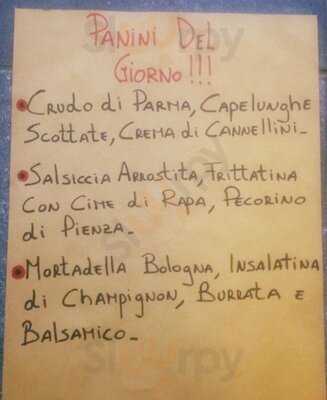 Panini Del
Giorno!!!
Crudo di Parma, Capelunghe
Scottate, Crema di Cannellini_
Salsiccia Arrostita, Frittatina
con Cime di Rapa, Pecorino
di Pienza_
Mortadella Bologna, Insalatina
di Champignon, Burrata e
Balsamico_